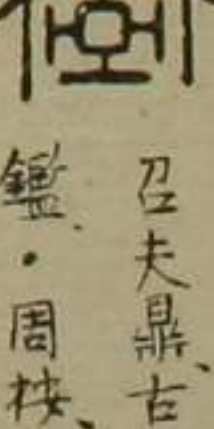 召夫鼎、古
鑑、·周桉、